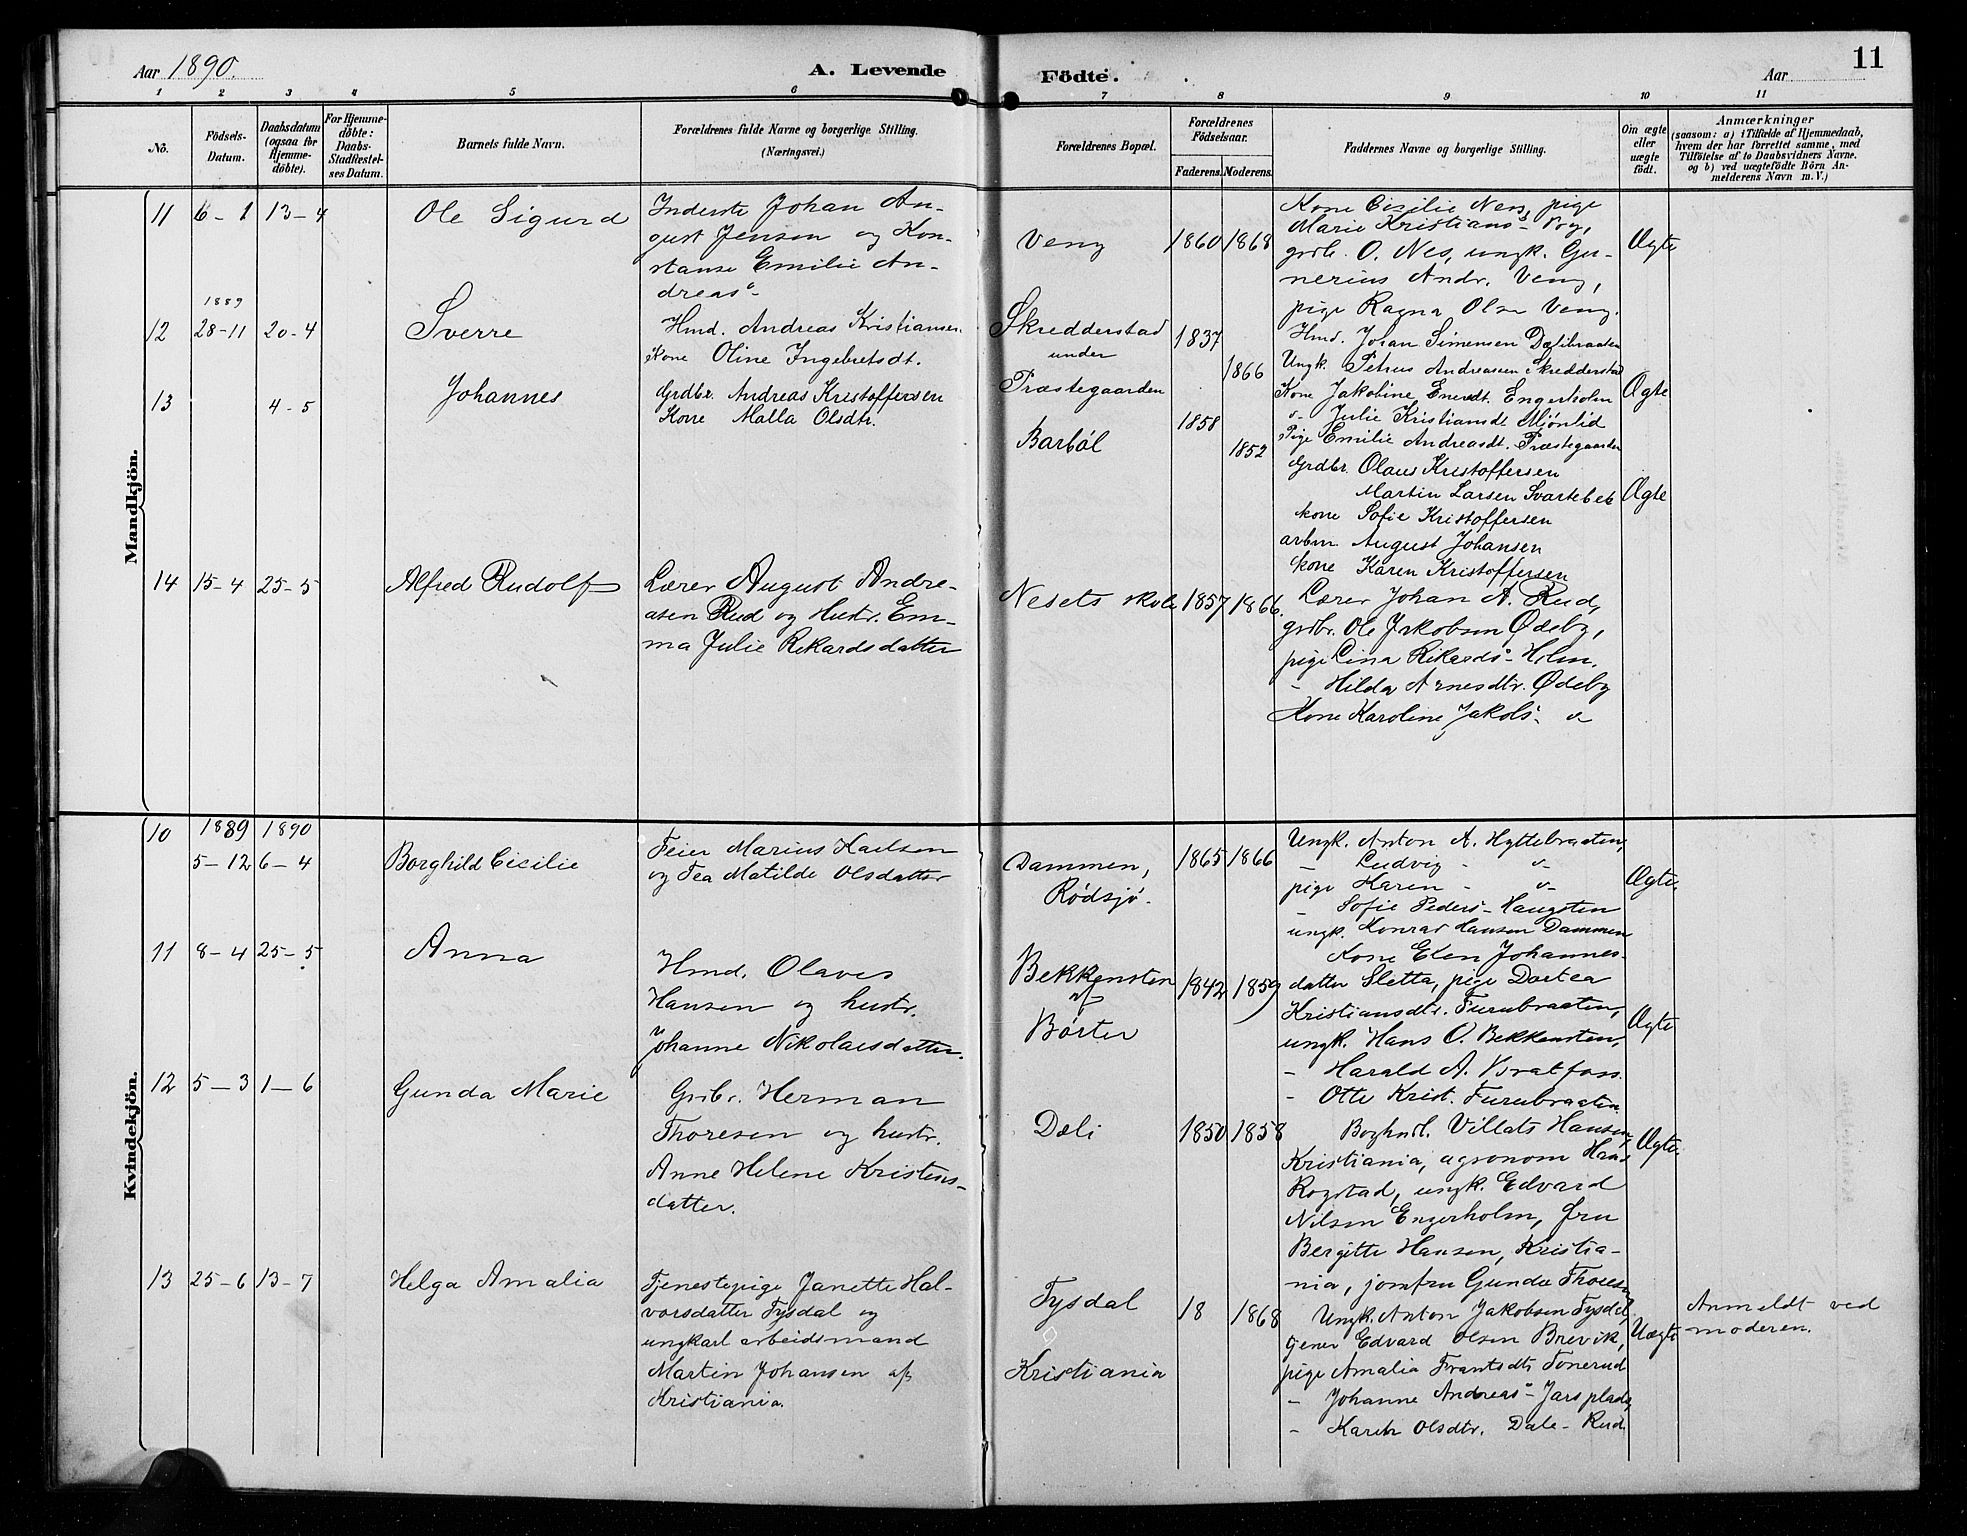 Aar 1890.
A. Levende
Födte.
Aar
11
1 2 3 4 5 6 7 8 9 10 11
No.
Födsels-
Datum.
Daabsdatum
(ogsaa for
Hjemme-
döbte).
For Hjemme-
döbte:
Daabs-
Stadfæstel-
ses Datum.
Barnets fulde Navn.
Forældrenes fulde Navne og borgerlige Stilling.
(Næringsvei.)
Forældrenes Bopæl.
Forældrenes
Födselsaar.
Faderens. Moderens.
Faddernes Navne og borgerlige Stilling.
Om ægte
eller
uægte
födt.
Anmærkninger
(saasom: a) i Tilfælde af Hjemmedaab,
hvem der har forrettet samme, med
Tilföielse af to Daabsvidners Navne.
og b) ved uægtefödte Börn An-
melderens Navn m. V.)
Mandkjön.
11 6-1 13-4
Ole Sigurd
Inderste Johan Au-
gust Jensen og Kon-
stanse Emilie An-
dreasd-
Veng
1860 1868
Kone Cesilie Nes, pige
Marie Kristiansd-
grdb. O. Nes, ungk. Gu-
nerius Andr. Veng,
pige Ragna Olsen Veng.
Ægte
12 1889
28-11 20-4
Sverre
Hmd. Andreas Kristiansen
Kone Oline Ingebretsdt.
Skredderstad
under
Præstegaarden
1837
1866
Hmd. Johan Simensen Dælibraaten
Ungk. Petrus Andreassen Skredderstad
Kone Jakobine Enersdt. Engerholm
" Julie Kristiansdt Mjönlid
Pige Emilie Andreasdt. Præstegaarden
Ægte
13 4-5
Johannes
Grdbr. Andreas Kristoffersen
Kone Malla Olsdtr.
Barböl
1858
1852
Grdbr. Olaus Kristoffersen
Martin Larsen Svartebek
kone Sofie Kristoffersen
arbm. August Johansen
kone Karen Kristoffersen
Ægte
14 15-4 25-5
Alfred Rudolf
Lærer August Andre-
asen Rud og Hustr. Em-
ma Julie Rikardsdatter
Nesets skole
1857 1866
Lærer Johan A. Rud,
grdbr. Ole Jakobsen Ødeby,
pige Lina Rikardsd- Holm.
- Hilda Arnesdtr. Ødeby
Kone Karoline Jakobsd- "
Kvindekjön.
10 1889 1890
5-12 6-4
Borghild Cicilie
Feier Marius Karlsen
og Tea Matilde Olsdatter
Dammen,
Rødsjø.
1865 1866
Ungk. Anton A. Hyttebraaten,
- Ludvig - "
pige Karen - "
- Sofie Peders- Haugsten
ungk. Konrad Hansen Dammen
Ægte
11 8-4 25-5
Anna
Hmd. Olaves
Hansen og hustr.
Johanne Nikolaisdatter.
Bekkensten
af
Børter
1842 1859
Kone Elen Johannes-
datter Sletta, pige Dortea
Kristiansdtr. Furubraaten,
ungk. Hans O. Bekkensten,
- Harald A. Bratfoss.
- Otto Krist. Furubraaten
Ægte
12 5-3 1-6
Gunda Marie
Grdbr. Herman
Thoresen og hustr.
Anne Helene Kristens-
datter.
Dæli
1850 1858
Boghndl. Villats Hansen,
Kristiania, agronom Hans
Rogstad, ungk. Edvard
Nilsen Engerholm, fru
Bergitte Hansen, Kristia-
nia, jomfru Gunda Thoresen
Ægte
13 25-6 13-7
Helga Amalia
Tjenestepige Janette Hal-
vorsdatter Tysdal og
ungkarl arbeidsmand
Martin Johansen af
Kristiania.
Tysdal
Kristiania
18 1868
Ungk. Anton Jakobsen Tysdal,
tjener Edvard Olsen Brevik,
pige Amalia Frantsdt. Tonerud
- Johanne Andreasd- Jarsplads
- Karen Olsdtr. Dale-Rud
Uægte
Anmeldt ved
moderen.